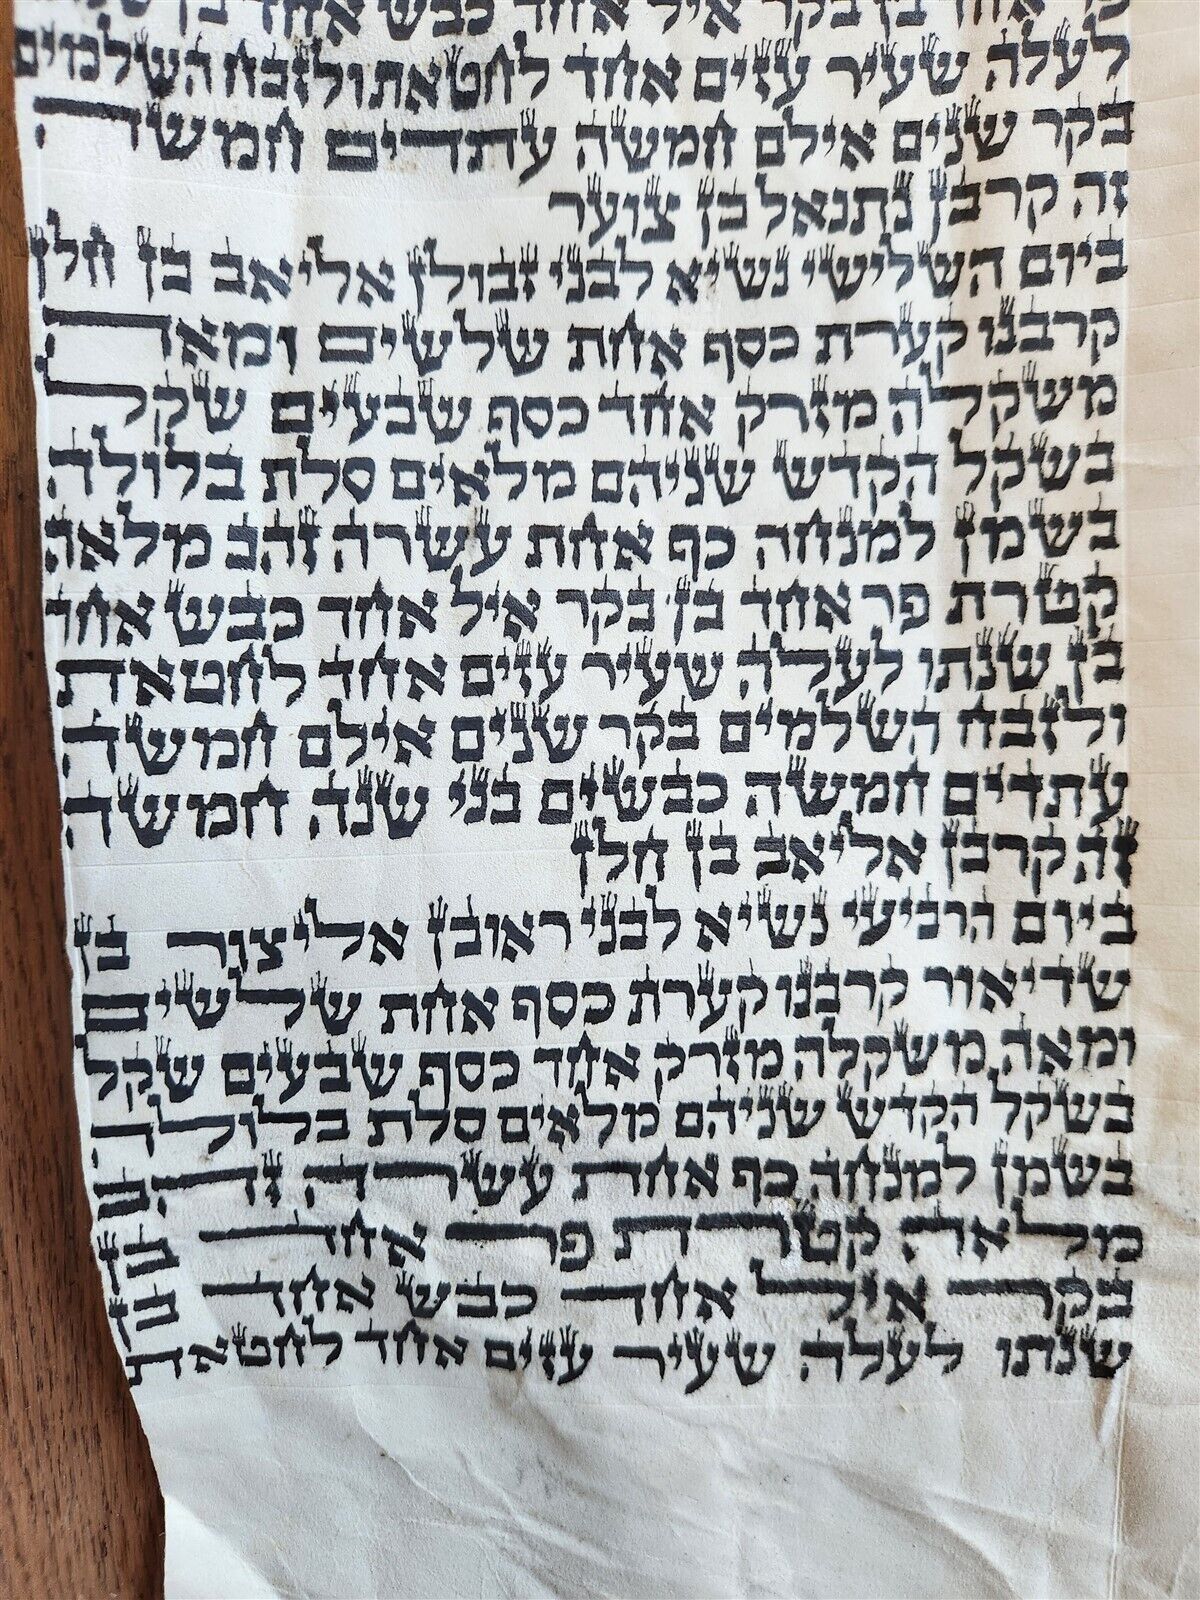 פר אחד בן בקר איל אחד כבש אחד בן
לעלה שעיר עזים אחד לחטאת ולזבח השלמים
בקר שנים אילם חמשה עתדים חמשה
זה קרבן נתנאל בן צוער
ביום השלישי נשיא לבני זבולן אליאב בן חלן
קרבנו קערת כסף אחת שלשים ומאה
משקלה מזרק אחד כסף שבעים שקל
בשקל הקדש שניהם מלאים סלת בלולה
בשמן למנחה כף אחת עשרה זהב מלאה
קטרת פר אחד בן בקר איל אחד כבש אחד
בן שנתו לעלה שעיר עזים אחד לחטאת
ולזבח השלמים בקר שנים אילם חמשה
עתדים חמשה כבשים בני שנה חמשה
זה קרבן אליאב בן חלן
ביום הרביעי נשיא לבני ראובן אליצור בן
שדיאור קרבנו קערת כסף אחת שלשים
ומאה משקלה מזרק אחד כסף שבעים שקל
בשקל הקדש שניהם מלאים סלת בלולה
בשמן למנחה כף אחת עשרה זהב
מלאה קטרת פר אחד בן
בקר איל אחד כבש אחד בן
שנתו לעלה שעיר עזים אחד לחטאת